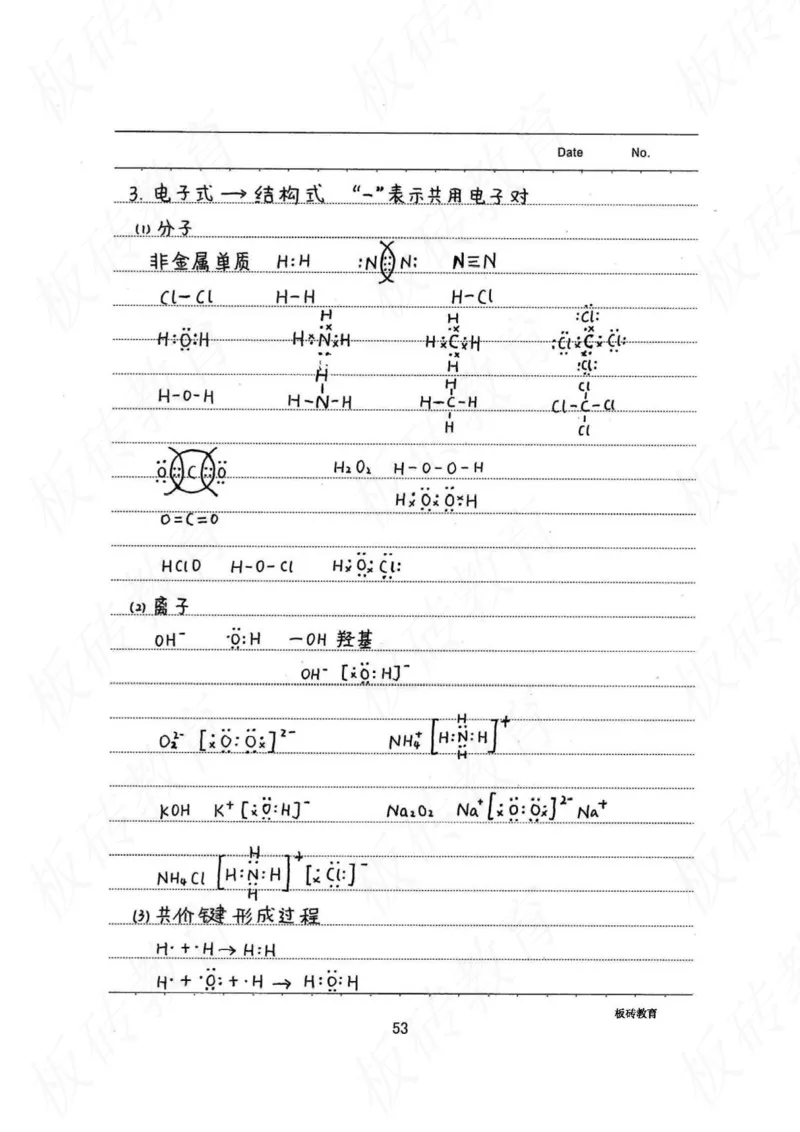 Date No.
3. 电子式 → 结构式 “-”表示共用电子对
(1) 分子
非金属单质 H:H :N⋮⋮N: N≡N
Cl-Cl H-H H-Cl
H:Ö:H H:N:H H:C:H :Cl:C:Cl:
H-O-H H-N-H H-C-H Cl-C-Cl
:O::C::O: H₂O₂ H-O-O-H
H:O:O:H
O=C=O
HClO H-O-Cl H:O:Cl:
(2) 离子
OH⁻ ·O:H -OH 羟基
OH⁻ [:O:H]⁻
O₂²⁻ [:O:O:]²⁻ NH₄⁺ [H:N:H]⁺
KOH K⁺[:O:H]⁻ Na₂O₂ Na⁺[:O:O:]²⁻Na⁺
NH₄Cl [H:N:H]⁺[:Cl:]⁻
(3) 共价键形成过程
H· + ·H → H:H
H· + ·O: + ·H → H:O:H
板砖教育
53